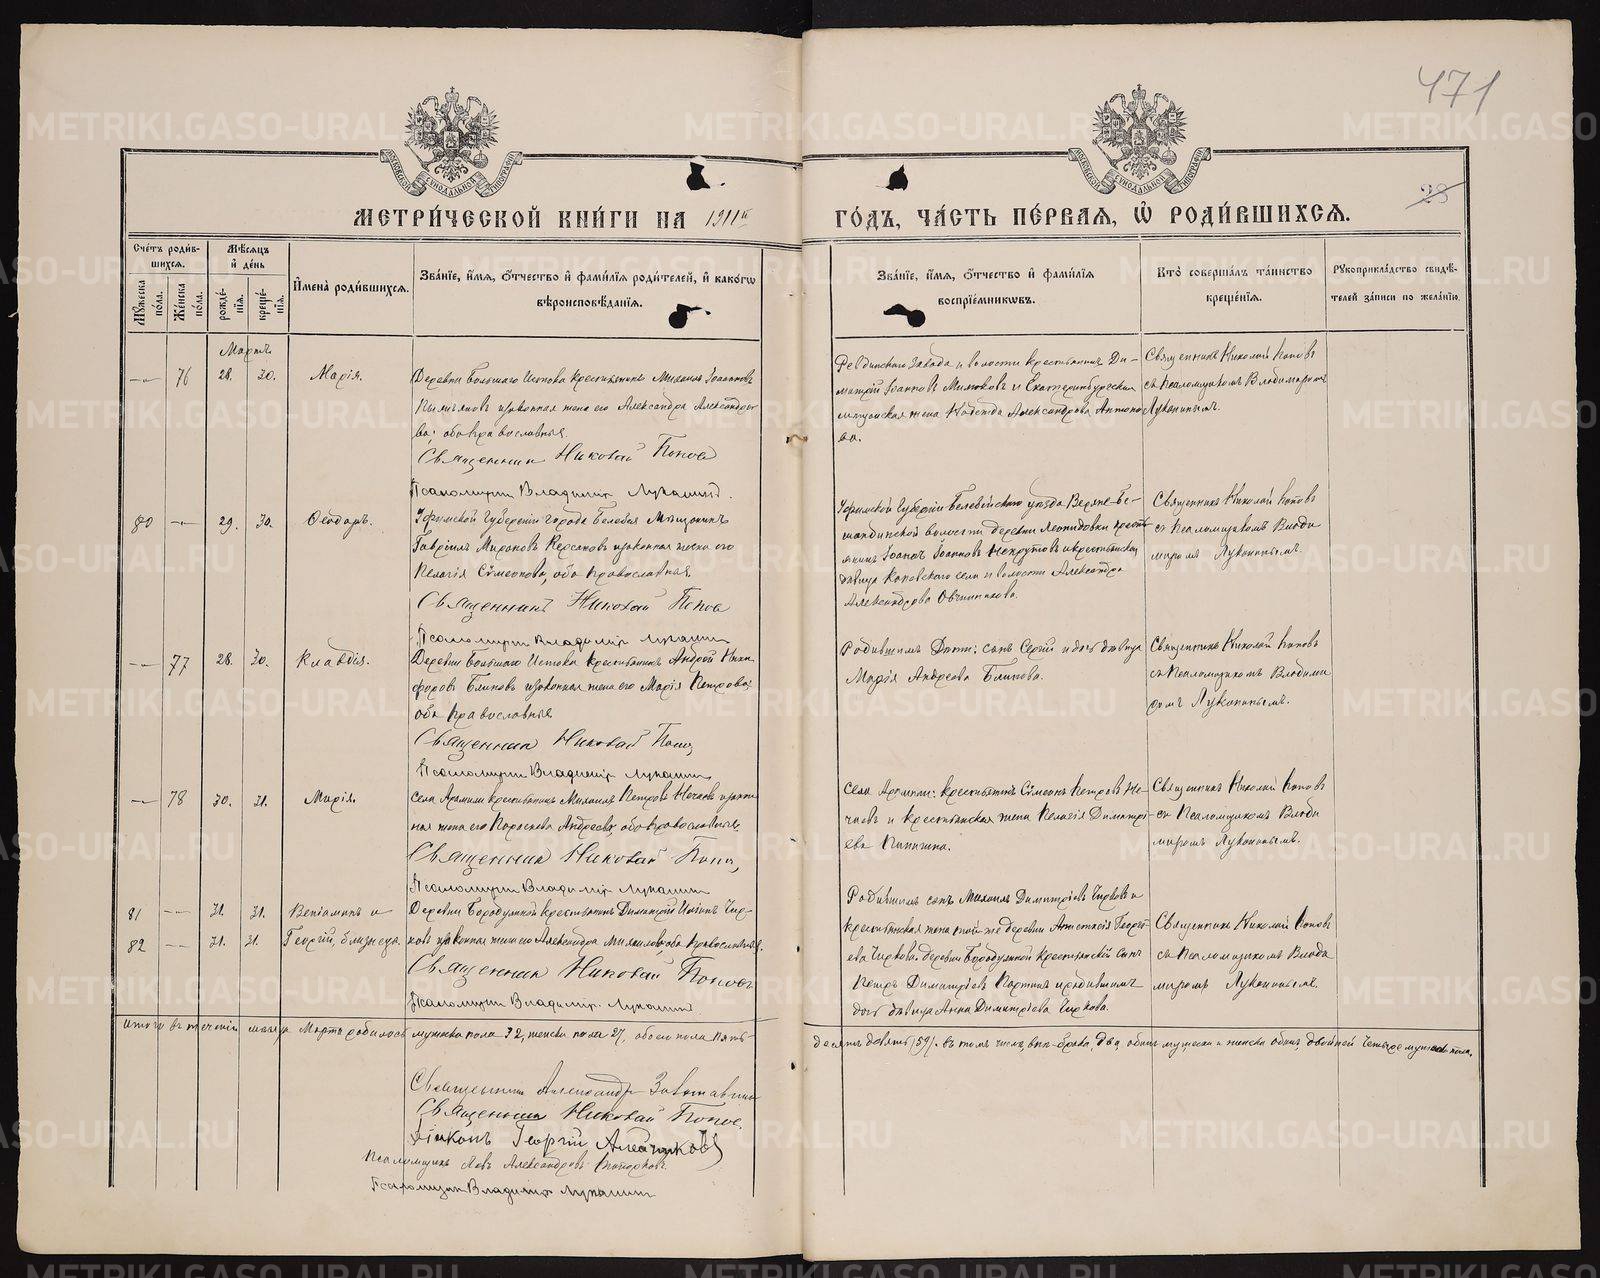 471
28
МЕТРИ́ЧЕСКОЙ КНИ́ГИ НА 1911й ГО́ДЪ, ЧА́СТЬ ПЕ́РВАЯ, Ѡ РОДИ́ВШИХСЯ.
Сче́тъ роди́вшихся.
Мꙋ́жеска по́ла.
Же́нска по́ла.
Мѣ́сяцъ и́ де́нь
рожде́нїя.
креще́нїя.
И҆мена̀ роди́вшихся.
Зва́нїе, и҆́мя, ѻ҆́тчество и҆ фами́лїя роди́телей, и҆ како́гѡ
вѣроисповѣ́данїя.
Зва́нїе, и҆́мя, ѻ҆́тчество и҆ фами́лїя
воспрїе́мникѡвъ.
Кто̀ соверша́лъ та́инство
креще́нїя.
Рꙋкоприкла́дство свидѣ́телей за́писи по жела́нїю.
Мартъ
— 76 28. 30. Марія.
Деревни Большаго Истока крестьянинъ Михаилъ Іоанновъ
законная жена его Александра Александро-
ва; оба православные.
Священник Николай Попов
Псаломщик Владимір Лукании.
Ревдинскаго Завода и волости крестьянинъ Ди-
митрій Іоанновъ и Екатеринбургская
мещанская жена Надежда Александрова Антоно-
ва.
Священникъ Николай Поповъ
съ Псаломщикомъ Владиміромъ
Луканинымъ.
80 — 29. 30. Ѳеодоръ.
Уфимской Губерніи города Белебея Мещанинъ
Гавріилъ Мироновъ законная жена его
Пелагія Сѵмеонова, оба православные.
Священник Николай Попов
Псаломщик Владимір Лукании
Уфимской Губерніи Белебейского уезда
волости деревни Леонидовки кресть-
янинъ Іоаннъ Іоанновъ и крестьянская
девица села и волости Александра
Александрова Овчинникова.
Священникъ Николай Поповъ
съ Псаломщикомъ Влади
миромъ Луканинымъ.
— 77 28. 30. Клавдія.
Деревни Большаго Истока крестьянинъ Андрей Ники-
форовъ Блиновъ законная жена его Марія Петрова;
оба православные
Священник Николай Попов
Псаломщик Владимір Лукании
Родившимъ дети: сынъ Сергій и дочь девица
Марія Андреева Блинова.
Священникъ Николай Поповъ
съ Псаломщикомъ Владими
ромъ Луканинымъ.
— 78 30. 31. Марія.
Села Арамили крестьянинъ Михаилъ Петровъ Нечаевъ закон-
ная жена его Параскева Андреева, оба православные.
Священник Николай Попов
Псаломщик Владимір Лукании
Села Арамили: крестьянинъ Сѵмеонъ Петровъ Не-
чаевъ и крестьянская жена Пелагія Димитрі-
ева
Священникъ Николай Поповъ
съ Псаломщикомъ Влади
миромъ Луканинымъ.
81 — 31. 31. Веніаминъ и
82 — 31. 31. Георгій, близнецы.
Деревни Бородулиной крестьянинъ Димитрій Чир-
ковъ законная жена его Александра Михаилова, оба православные.
Священник Николай Поповъ
Псаломщик Владимір Лукании
Родившимъ сынъ Михаилъ Димитріевъ Чирковъ и
крестьянская жена той же деревни Анастасія Георгі-
ева Чиркова. деревни Бородулиной крестьянскій сынъ
Петръ Димитріевъ и родившимъ
дочь девица Анна Димитріева Чиркова.
Священникъ Николай Поповъ
съ Псаломщикомъ Влади
миромъ Луканинымъ.
Итого въ теченіи месяца Марта родилось мужеска пола 32, женска пола 27, обоего пола пять-
десятъ девять /59/. въ томъ числе вне-брака, два, одинъ мужеска и женска одинъ, двойней четыре мужеска пола.
Священник Александр
Священник Николай Попов.
Діаконъ Георгій
Псаломщикъ Александровъ
Псаломщик Владимір Лукании
МОСКОВСКОЙ СѴНОДАЛЬНОЙ ТИПОГРАФІИ
МОСКОВСКОЙ СѴНОДАЛЬНОЙ ТИПОГРАФІИ
METRIKI.GASO-URAL.RU